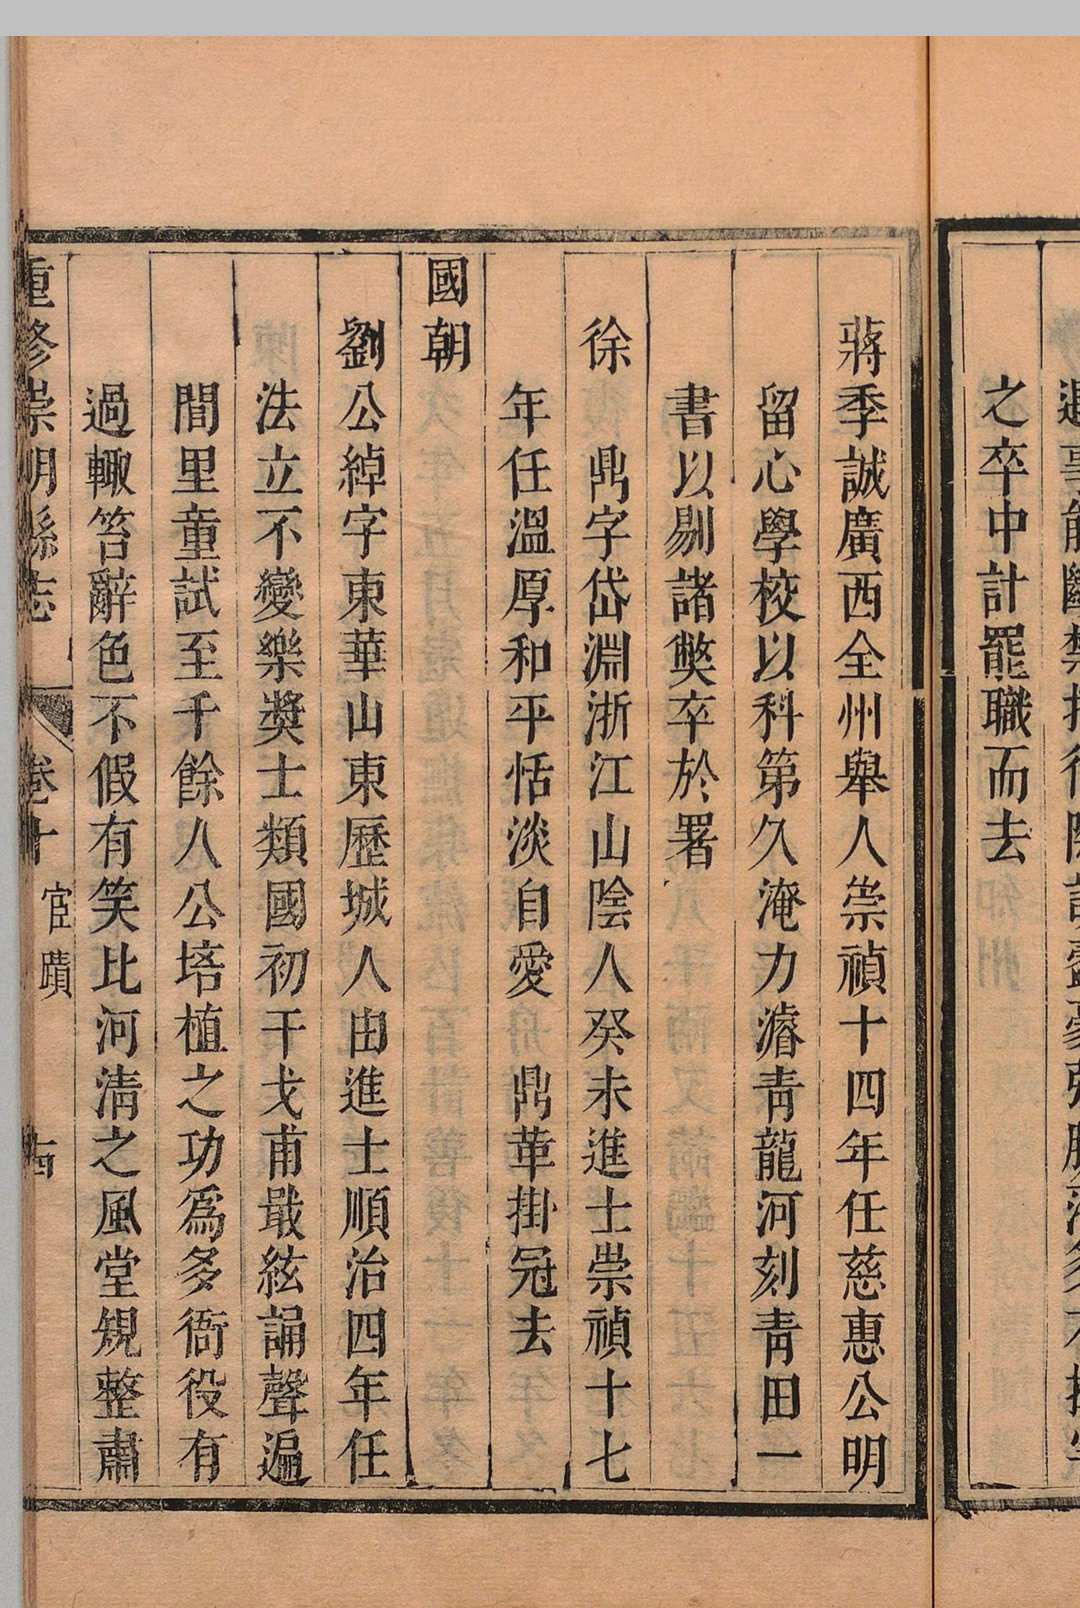 之卒中計罷職而去
蔣季誠廣西全州舉人崇禎十四年任慈惠公明
留心學校以科第久淹力濬青龍河刻青田一
書以剔諸獘卒於署
徐　鼎字岱淵浙江山陰人癸未進士崇禎十七
年任溫厚和平恬淡自愛　鼎革掛冠去
國朝
劉公綽字東華山東歷城人由進士順治四年任
法立不變樂奬士類國初干戈甫戢絃誦聲遍
閭里童試至千餘人公培植之功爲多衙役有
過輙笞辭色不假有笑比河清之風堂規整肅
重修崇明縣志　卷十　宦蹟